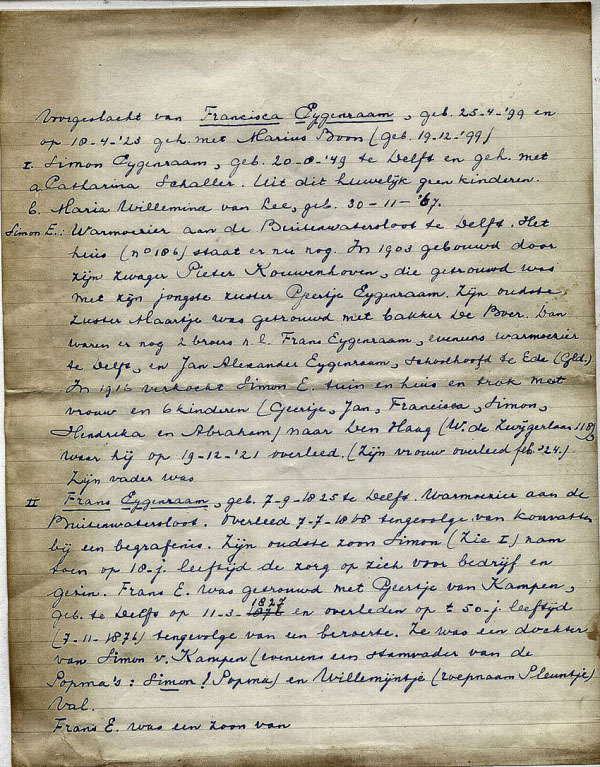 Voorgeslacht van Francisca Eygenraam, geb. 25-4-'99 en
op 18-4-'23 geh. met Marius Boon (geb. 19-12-'99)
I. Simon Eygenraam, geb. 20-8-'49 te Delft en geh. met
a. Catharina Schaller. Uit dit huwelijk geen kinderen.
b. Maria Willemina van Lee, geb. 30-11-'67.
Simon E.: Warmoezier aan de Buitenwatersloot te Delft. Het
huis (no 186) staat er nu nog. In 1903 gebouwd door
zijn zwager Pieter Kouwenhoven, die getrouwd was
met zijn jongste zuster Pjertje Eygenraam. Zijn oudste
zuster Maartje was getrouwd met bakker De Boer. Dan
waren er nog 2 broers n.l. Frans Eygenraam, eveneens warmoezier
te Delft, en Jan Alexander Eygenraam, schoolhoofd te Ede (Gld.)
In 1916 verkocht Simon E. tuin en huis en trok met
vrouw en 6 kinderen (Geertje, Jan, Francisca, Simon,
Hendrika en Abraham) naar Den Haag (W. de Zwijgerlaan 118)
waar hij op 19-12-'21 overleed. (Zijn vrouw overleed feb. '24.)
Zijn vader was
II Frans Eygenraam, geb. 7-9-1825 te Delft. Warmoezier aan de
Buitenwatersloot. Overleed 7-7-1868 tengevolge van kouvatten
bij een begrafenis. Zijn oudste zoon Simon (Zie I) nam
toen op 18-j. leeftijd de zorg op zich voor bedrijf en
gezin. Frans E. was getrouwd met Geertje van Kampen,
geb. te Delft op 11-3-1827 en overleden op ± 50-j. leeftijd
(7-11-1876) tengevolge van een beroerte. Ze was een dochter
van Simon v. Kampen (eveneens een stamvader van de
Popma's: Simon! Popma) en Willemijntje (roepnaam Pleuntje)
Val.
Frans E. was een zoon van